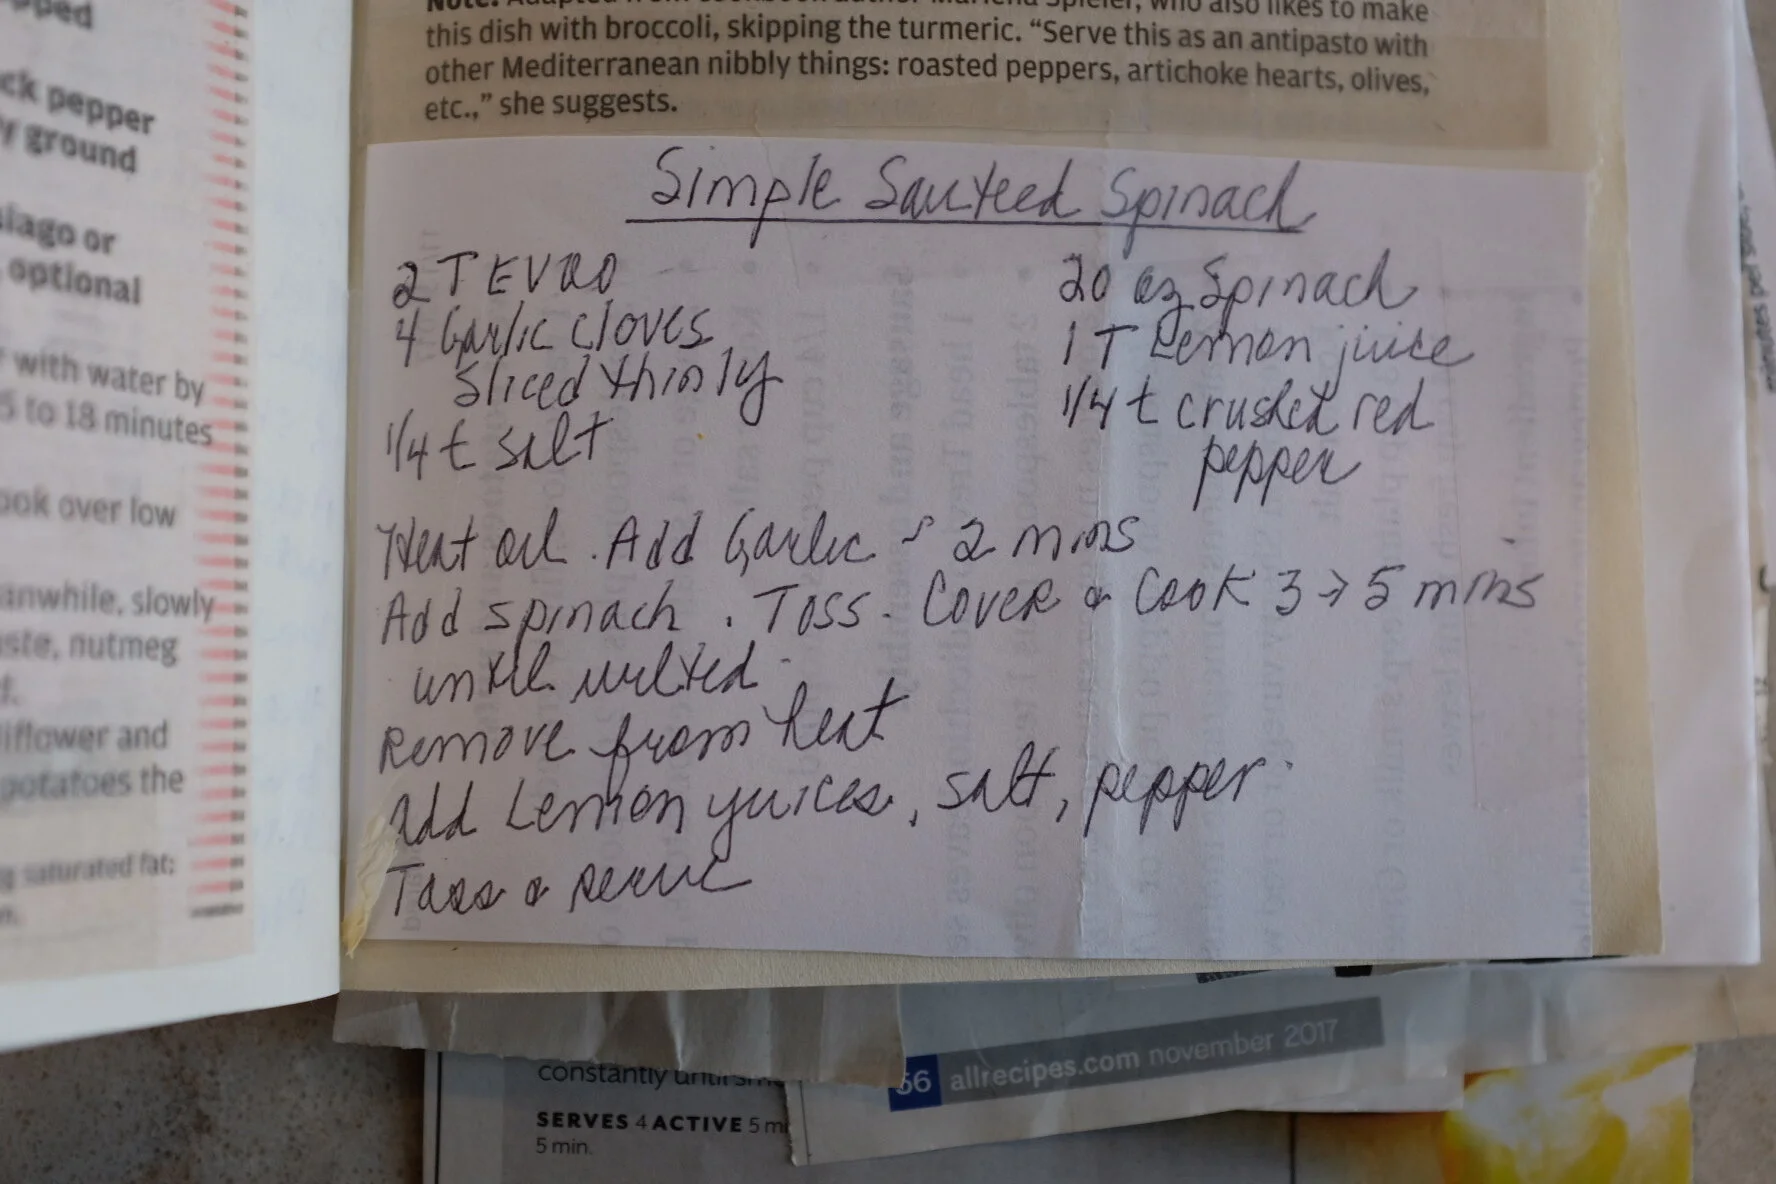 pped
ck pepper
y ground
siago or
, optional
with water by
5 to 18 minutes
ook over low
anwhile, slowly
ste, nutmeg
liflower and
potatoes the
saturated fat;
Note: Adapted from cookbook author Marlena Spieler, who also likes to make
this dish with broccoli, skipping the turmeric. “Serve this as an antipasto with
other Mediterranean nibbly things: roasted peppers, artichoke hearts, olives,
etc.,” she suggests.
Simple Sauteed Spinach
2 T EVOO
4 Garlic cloves
sliced thinly
1/4 t salt
20 oz Spinach
1 T Lemon juice
1/4 t crushed red
pepper
Heat oil. Add Garlic ~ 2 mins
Add spinach. Toss. Cover & Cook 3 → 5 mins
until wilted.
Remove from heat
Add Lemon juices, salt, pepper.
Toss & serve
56 allrecipes.com november 2017
constantly until
SERVES 4 ACTIVE 5 mi
5 min.